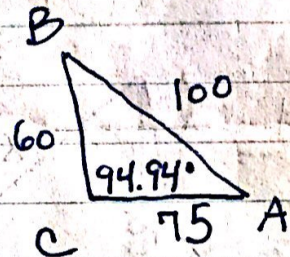 B
100
60
94.94°
75
A
C